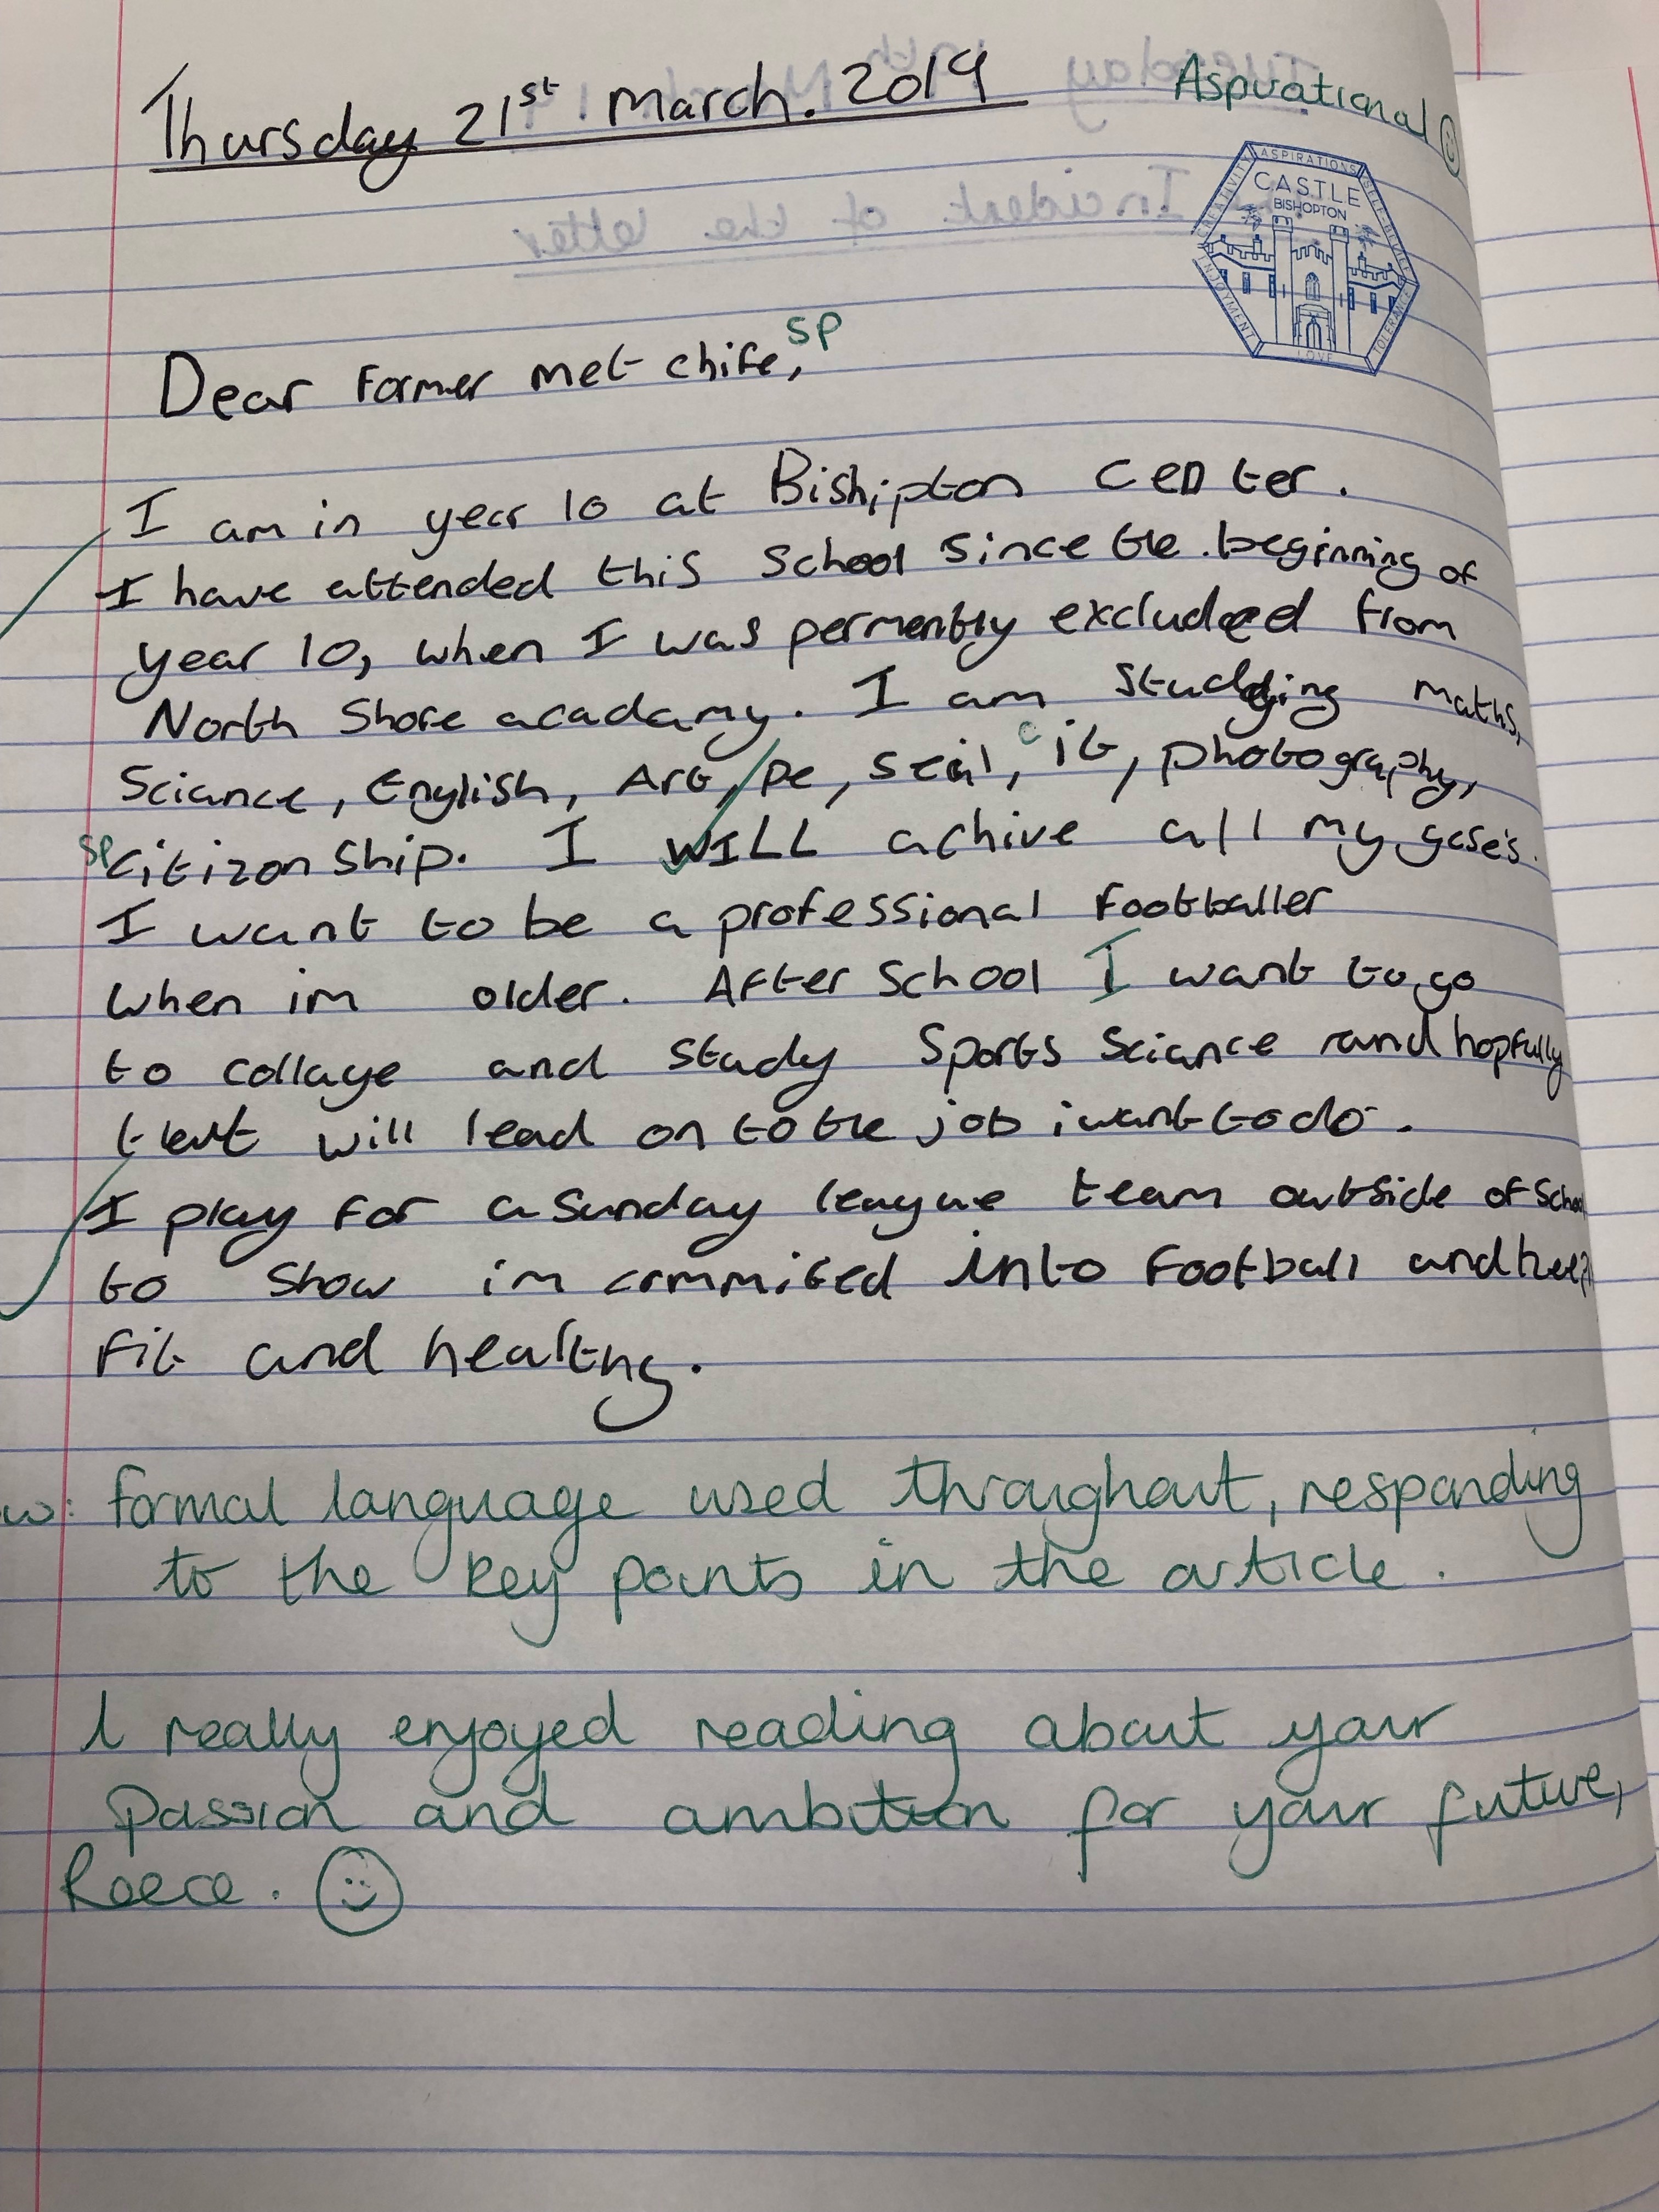 Thursday 21st March. 2019
Aspirational
ASPIRATIONS
SELF-BELIEF
TOLERANCE
LOVE
ENJOYMENT
CREATIVITY
CASTLE
BISHOPTON
Incident of the letter
Dear Former met chife, SP
I am in year 10 at Bishipton center.
I have attended this School since the beginning of
year 10, when I was permently excluded from
North Shore acadamy. I am studying maths,
Sciance, English, Art, pe, seal, it, photography,
SP citizonship. I WILL achive all my gcse's.
I want to be a professional footballer
when im older. After School I want to go
to collage and study Sports Sciance and hopfully
that will lead on to the job i want to do.
I play for a sunday league team outside of School
to show im commited into football and keep
fit and healthy.
WWW: formal language used throughout, responding
to the key points in the article.
I really enjoyed reading about your
passion and ambition for your future,
Reece.